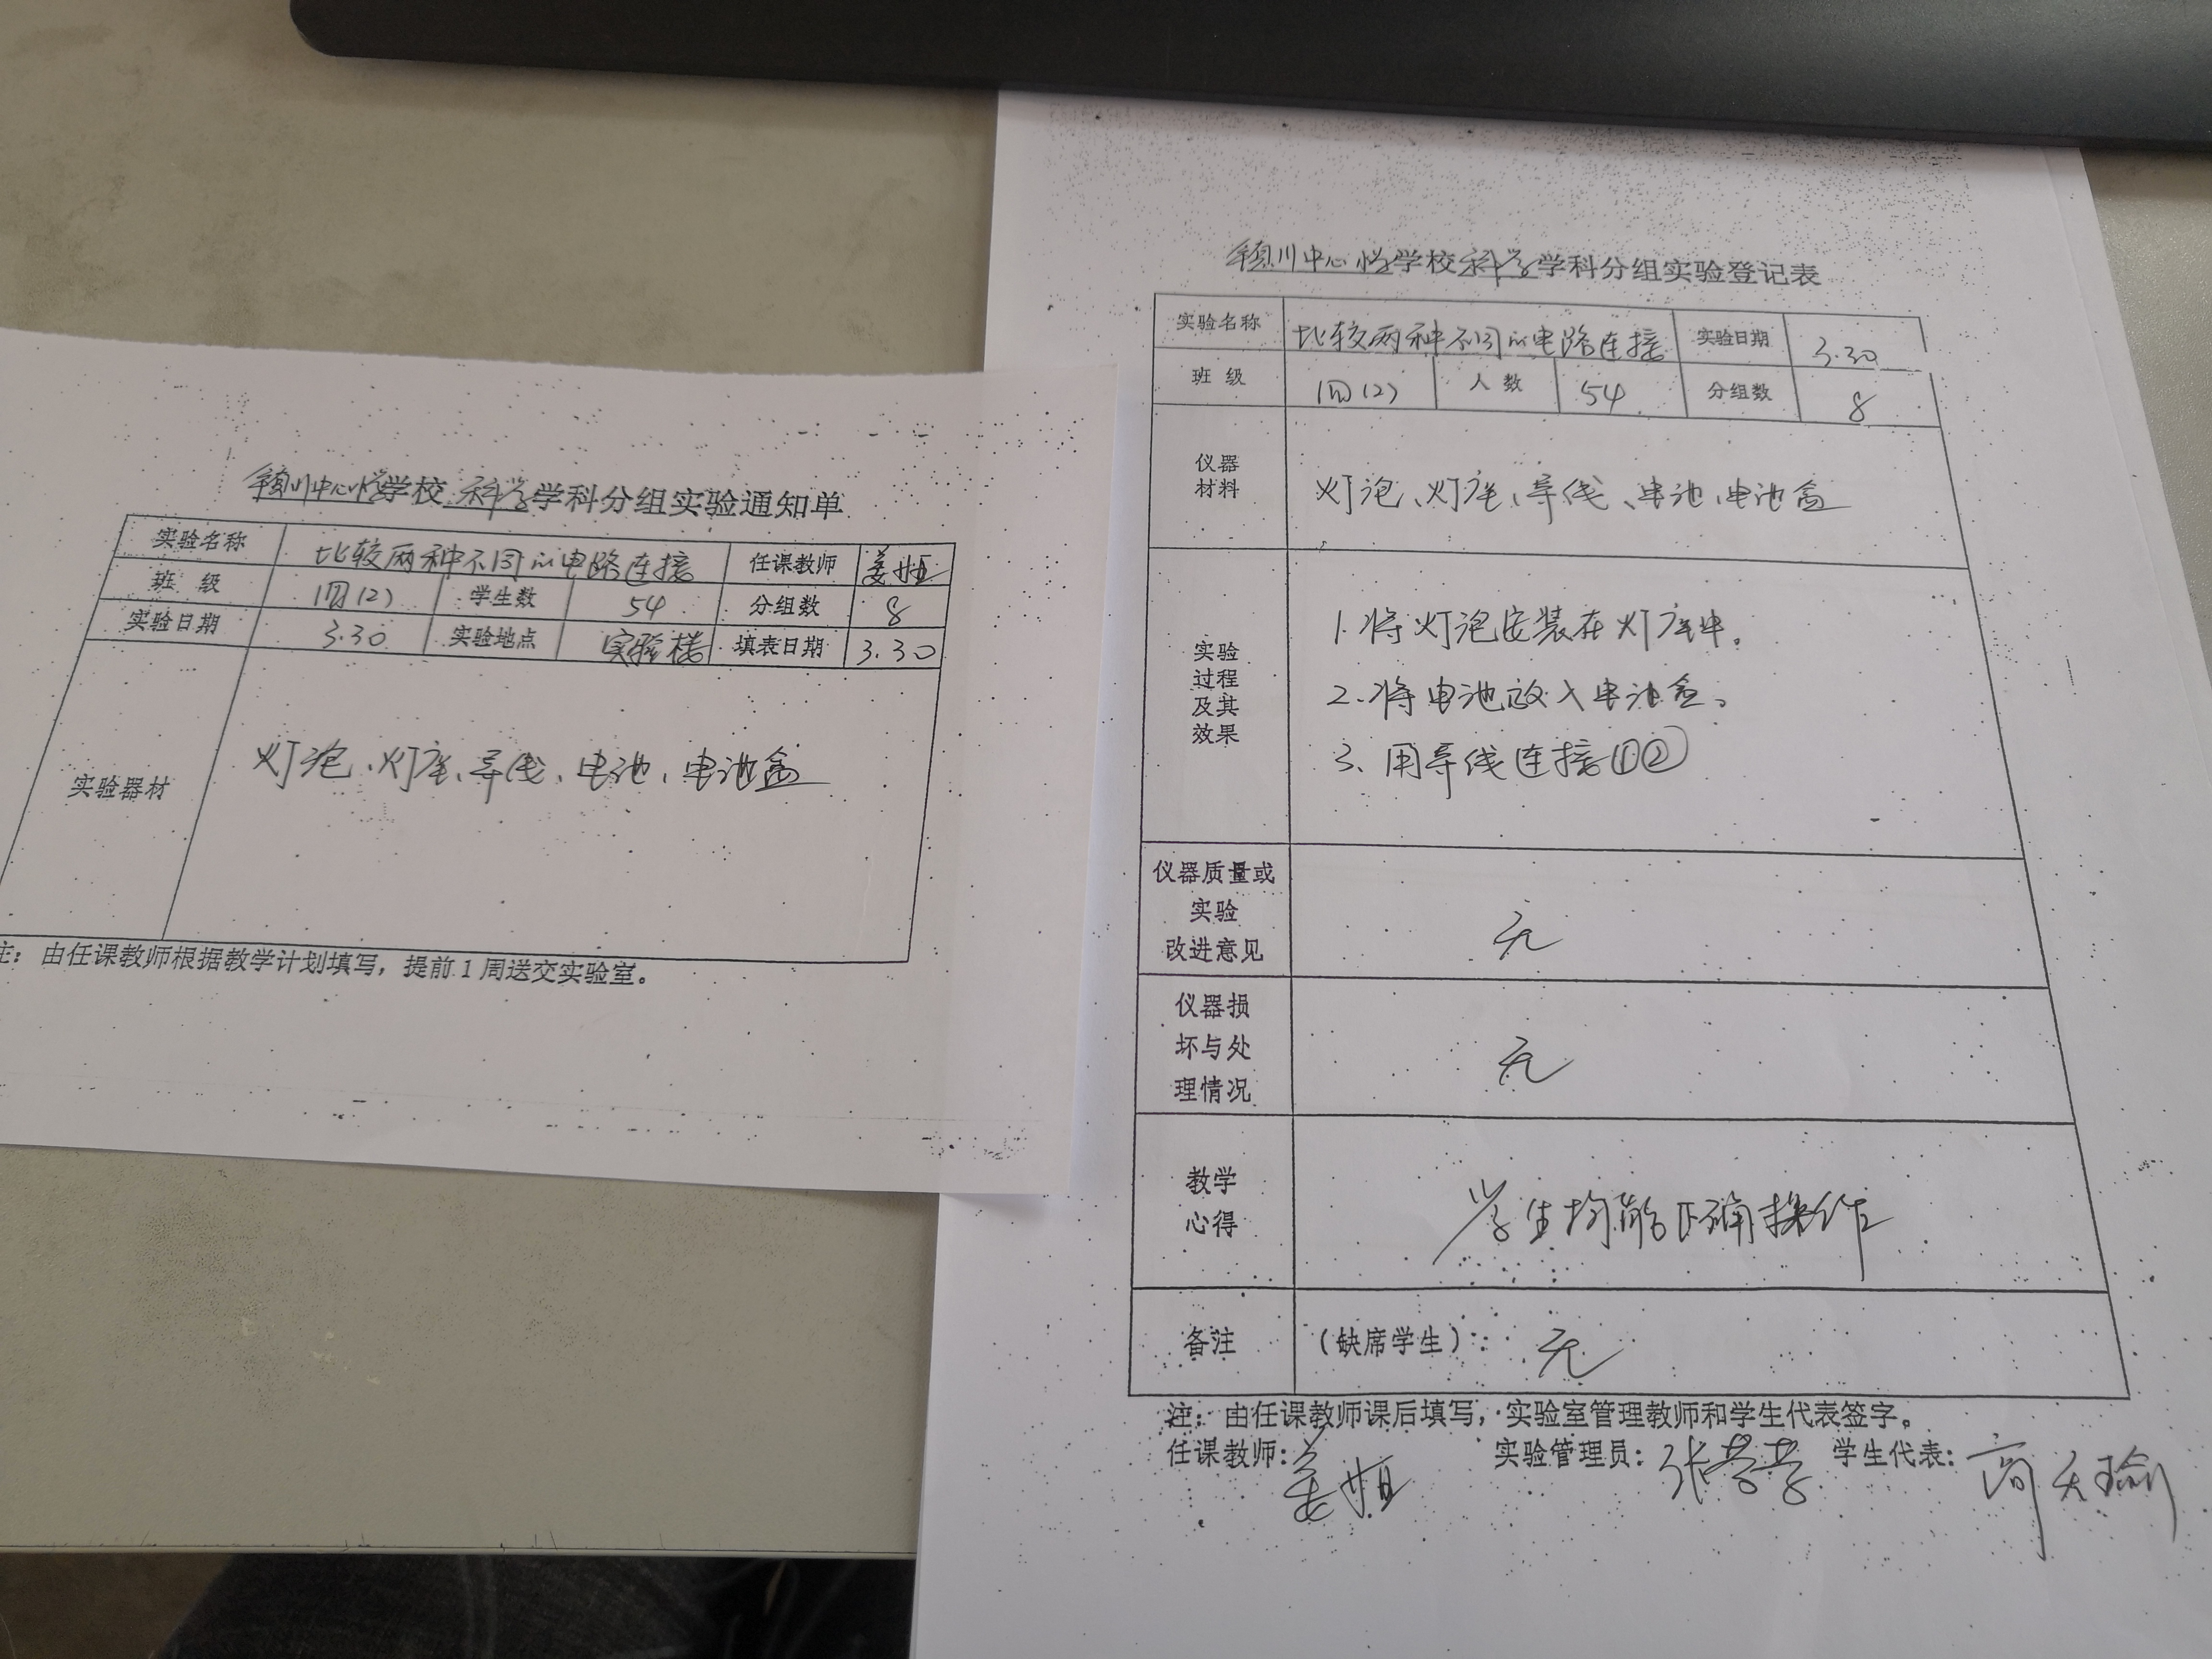 颍川中心小学学校科学学科分组实验通知单
实验名称 比较两种不同的电路连接 任课教师 姜姐
班 级 四(2) 学生数 54 分组数 8
实验日期 3.30 实验地点 实验楼 填表日期 3.30
实验器材 灯泡、灯座、导线、电池、电池盒
注：由任课教师根据教学计划填写，提前1周送交实验室。
颍川中心小学学校科学学科分组实验登记表
实验名称 比较两种不同的电路连接 实验日期 3.30
班 级 四(2) 人 数 54 分组数 8
仪器
材料
灯泡、灯座、导线、电池、电池盒
实验
过程
及其
效果
1.将灯泡安装在灯座中。
2.将电池放入电池盒。
3.用导线连接①②
仪器质量或
实验
改进意见
无
仪器损
坏与处
理情况
无
教学
心得
学生均能正确操作
备注 (缺席学生)： 无
注：由任课教师课后填写，实验室管理教师和学生代表签字。
任课教师：姜姐 实验管理员： 学生代表：